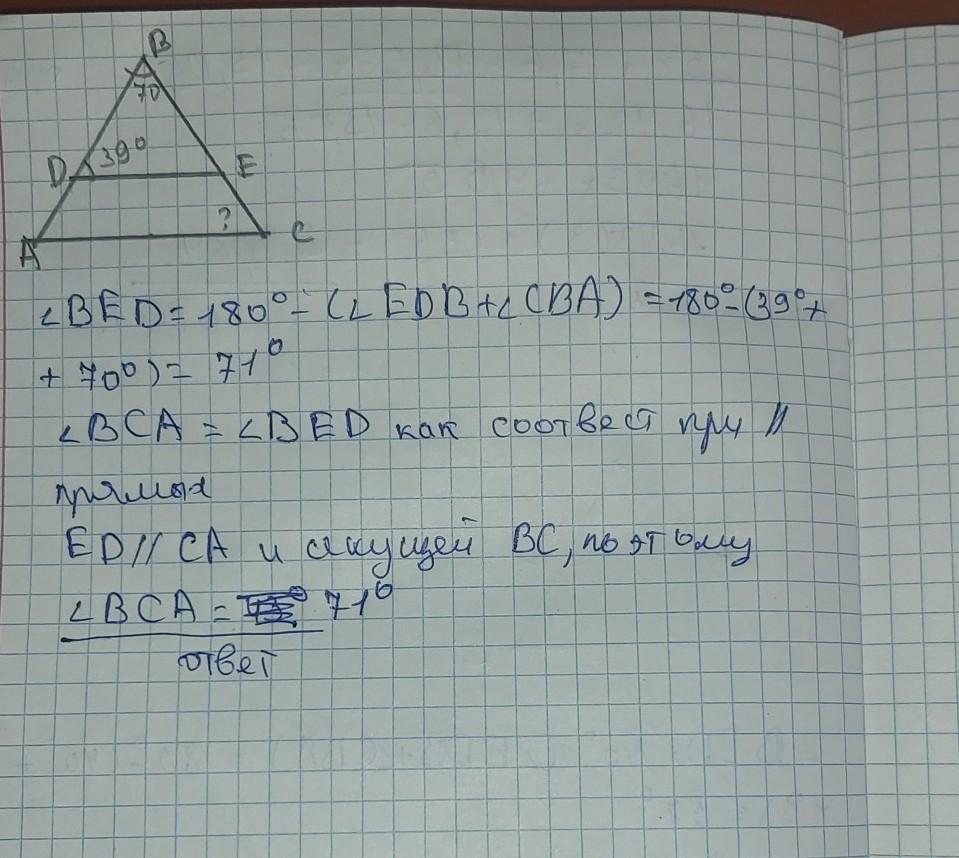 B
70
D 39° E
?
A C
∠BED = 180° - (∠EDB + ∠CBA) = 180° - (39° +
+ 70°) = 71°
∠BCA = ∠BED как соотвест при //
прямых
ED // CA и секущей BC, поэтому
∠BCA = 71°
ответ